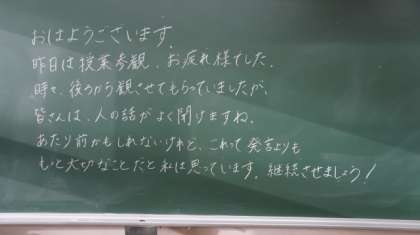 おはようございます。
昨日は授業参観、お疲れ様でした。
時々、後ろから観させてもらっていましたが、
皆さんは、人の話がよく聞けますね。
あたり前かもしれないけれど、これって発言よりも
もっと大切なことだと私は思っています。継続させましょう!